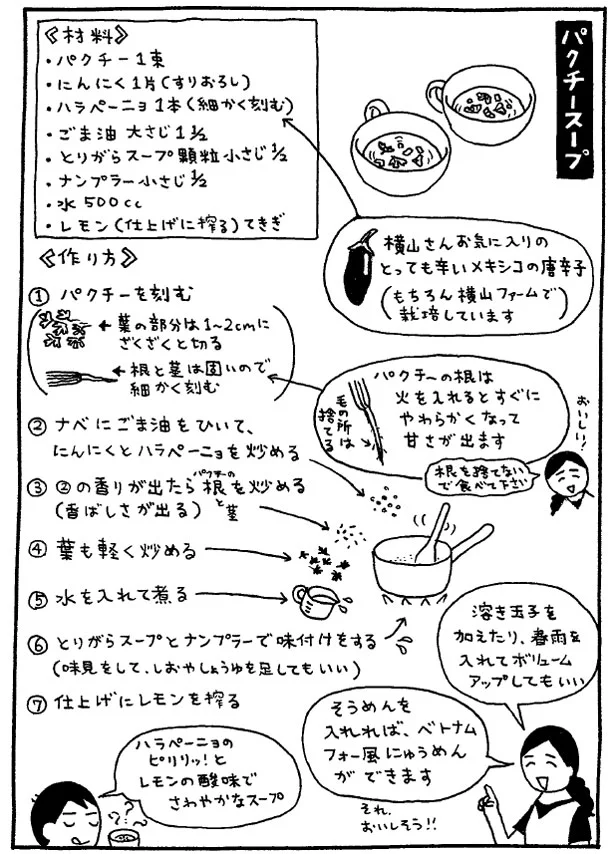 パクチースープ
《材料》
・パクチー1束
・にんにく1片(すりおろし)
・ハラペーニョ1本(細かく刻む)
・ごま油 大さじ1½
・とりがらスープ顆粒小さじ½
・ナンプラー小さじ½
・水500cc
・レモン(仕上げに搾る)てきぎ
横山さんお気に入りの
とっても辛いメキシコの唐辛子
(もちろん横山ファームで
栽培しています)
《作り方》
① パクチーを刻む
(←葉の部分は1~2cmに
ざくざくと切る
←根と茎は固いので
細かく刻む)
パクチーの根は
火を入れるとすぐに
やわらかくなって
甘さが出ます
毛の所は
捨てる
おいしい!
根を捨てないで
で食べて下さい
② ナベにごま油をひいて、
にんにくとハラペーニョを炒める
③ ②の香りが出たらパクチーの根と茎を炒める
(香ばしさが出る)
④ 葉も軽く炒める
⑤ 水を入れて煮る
⑥ とりがらスープとナンプラーで味付けをする
(味見をして、しおやしょうゆを足してもいい)
⑦ 仕上げにレモンを搾る
溶き玉子を
加えたり、春雨を
入れてボリューム
アップしてもいい
そうめんを
入れれば、ベトナム
フォー風にゅうめん
ができます
それ、
おいしそう!!
ハラペーニョの
ピリリッ!と
レモンの酸味で
さわやかなスープ
???